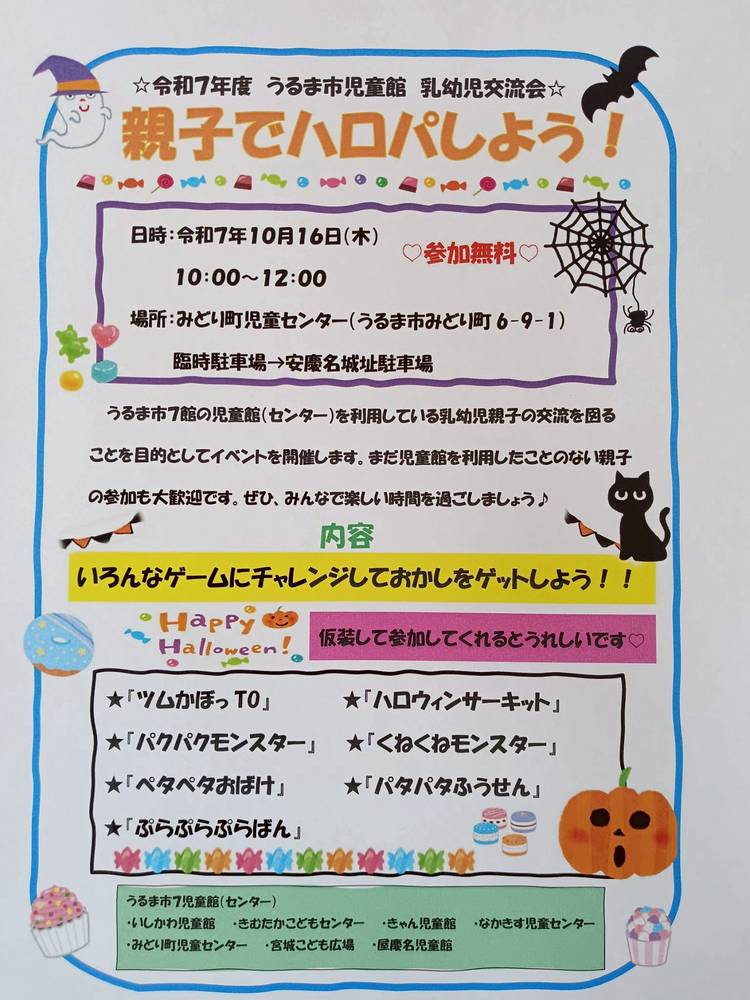 ☆令和7年度 うるま市児童館 乳幼児交流会☆
親子でハロパしよう！
日時：令和7年10月16日(木)
♡参加無料♡
10:00～12:00
場所：みどり町児童センター(うるま市みどり町6-9-1)
臨時駐車場→安慶名城址駐車場
うるま市7館の児童館(センター)を利用している乳幼児親子の交流を図る
ことを目的としてイベントを開催します。まだ児童館を利用したことのない親子
の参加も大歓迎です。ぜひ、みんなで楽しい時間を過ごしましょう♪
内容
いろんなゲームにチャレンジしておかしをゲットしよう！！
Happy
Halloween!
仮装して参加してくれるとうれしいです♡
★『ツムかぼっTO』 ★『ハロウィンサーキット』
★『パクパクモンスター』 ★『くねくねモンスター』
★『ペタペタおばけ』 ★『パタパタふうせん』
★『ぷらぷらぷらばん』
うるま市7児童館(センター)
・いしかわ児童館 ・きむたかこどもセンター ・きゃん児童館 ・なかきす児童センター
・みどり町児童センター ・宮城こども広場 ・屋慶名児童館